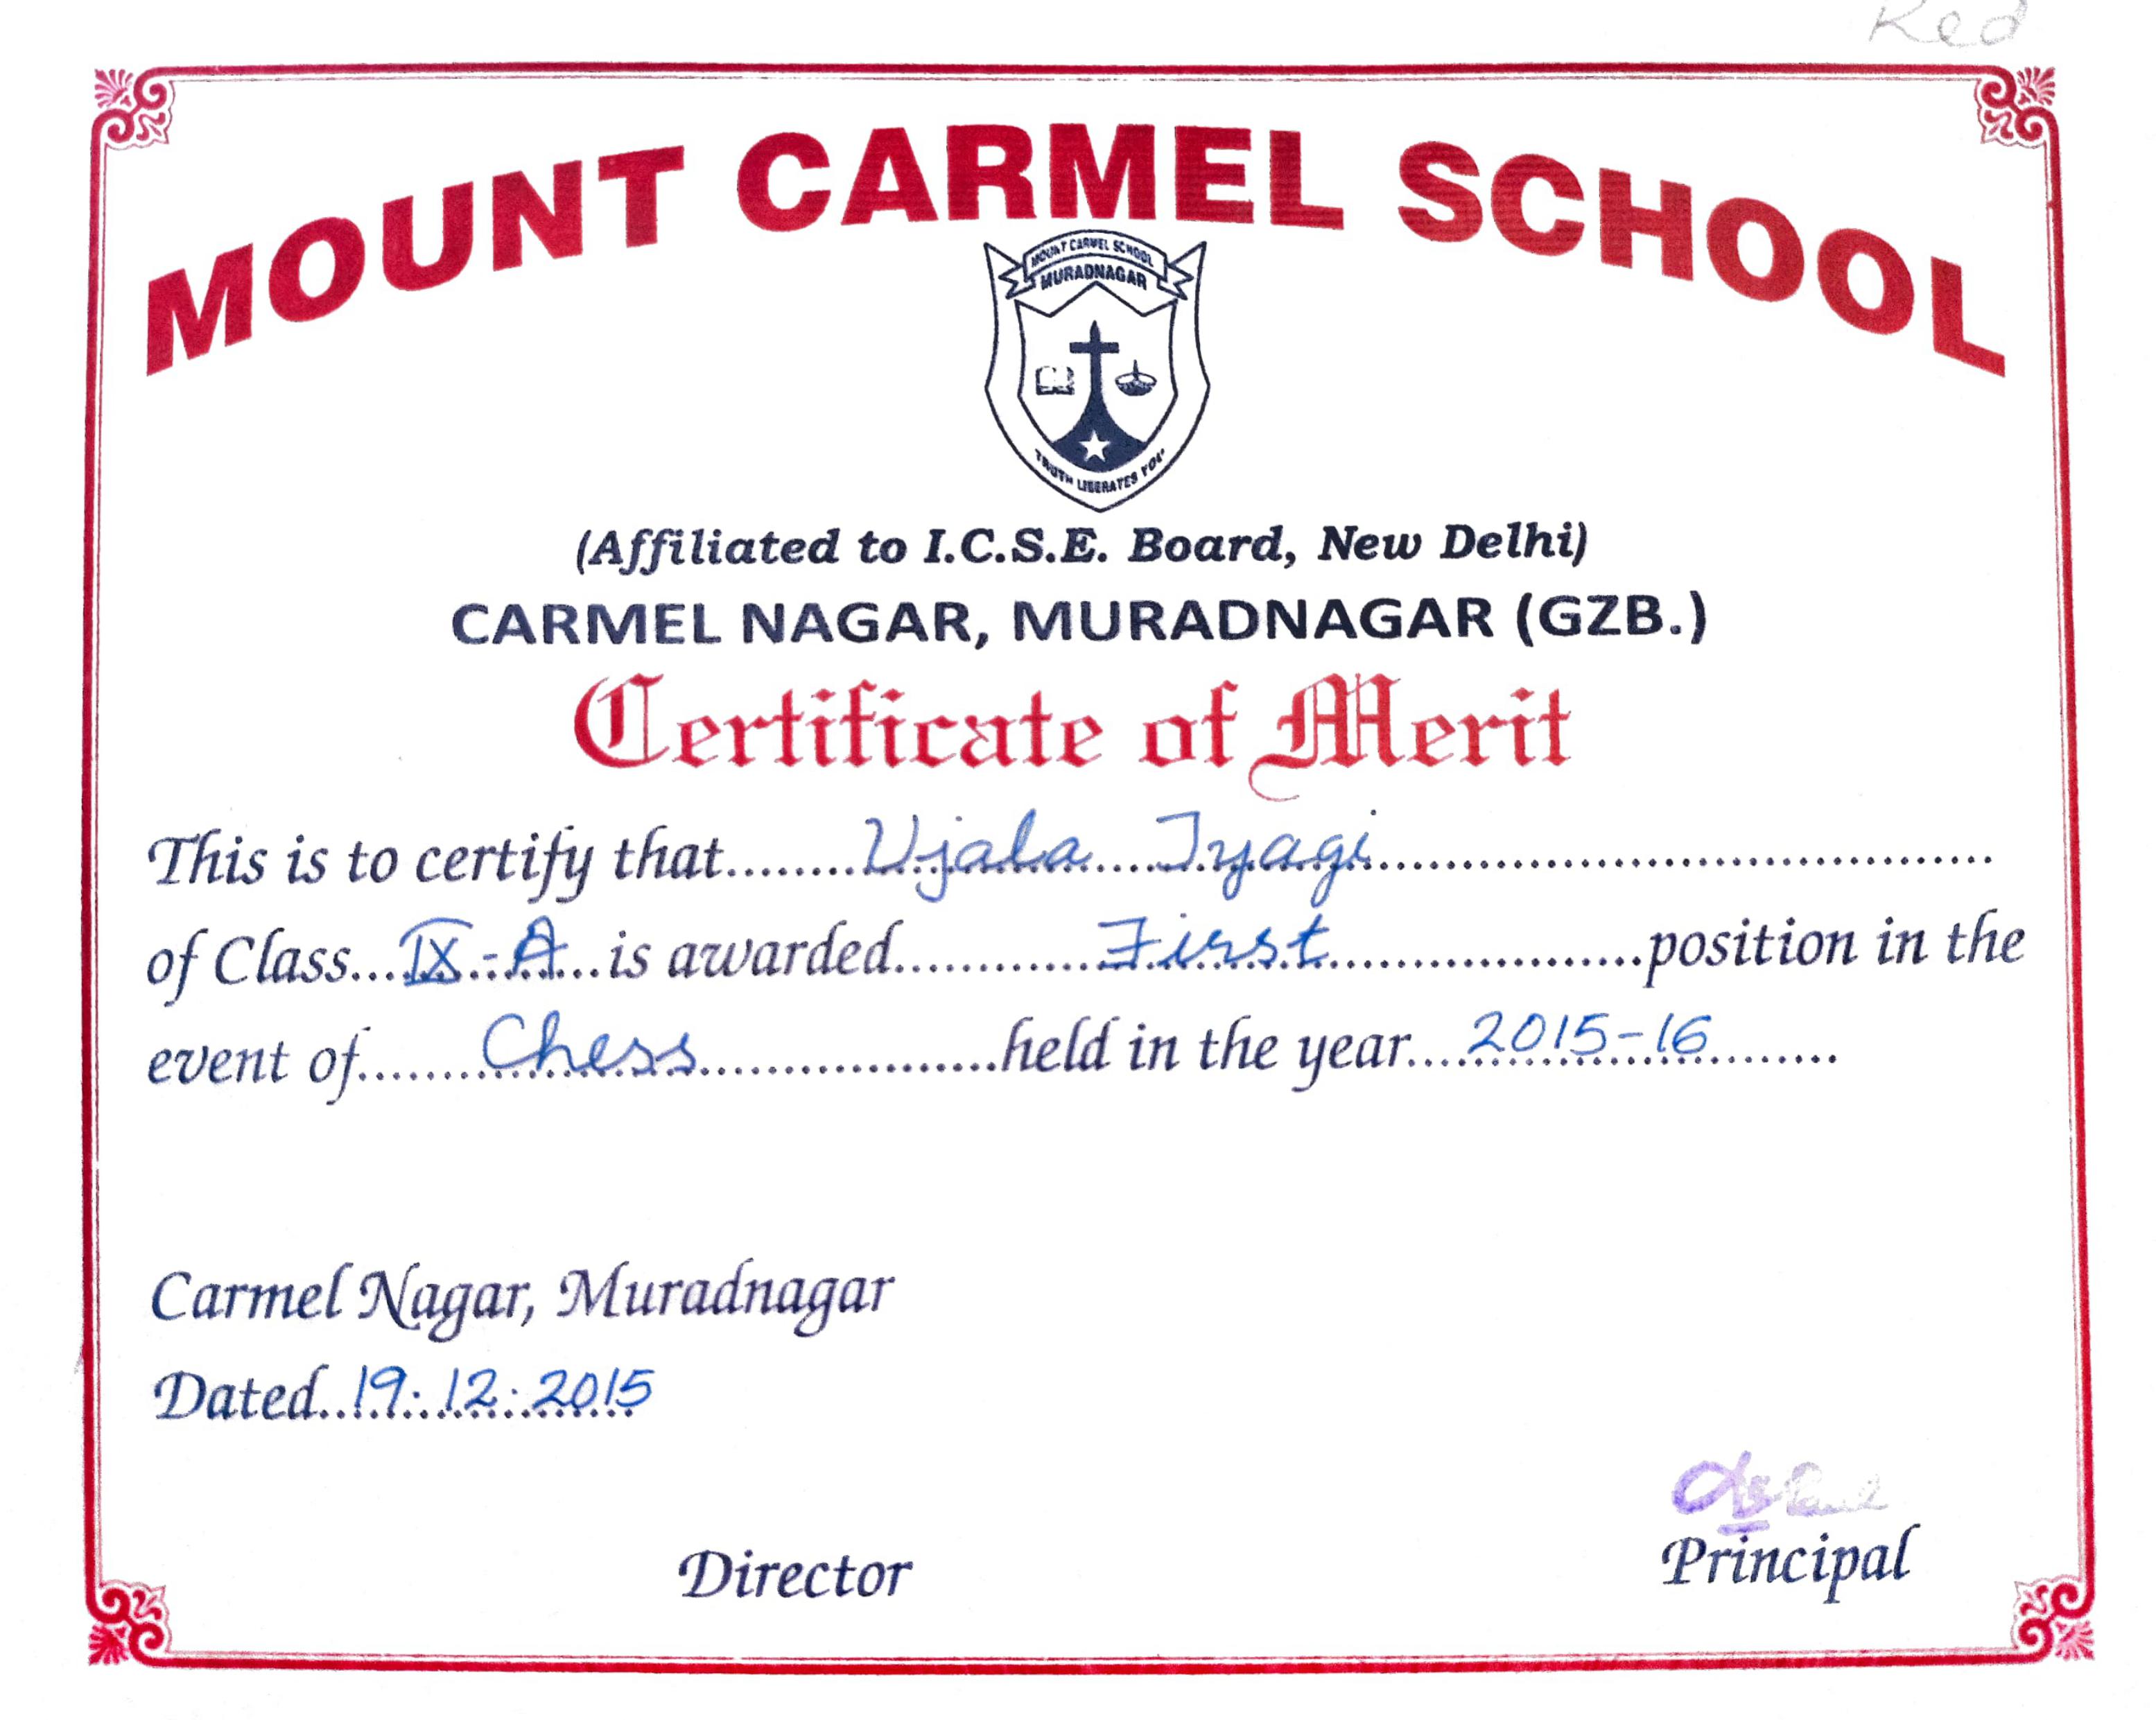 Red
MOUNT CARMEL SCHOOL
MOUNT CARMEL SCHOOL
MURADNAGAR
TRUTH LIBERATES YOU
(Affiliated to I.C.S.E. Board, New Delhi)
CARMEL NAGAR, MURADNAGAR (GZB.)
Certificate of Merit
This is to certify that........Ujala Tyagi........
of Class...IX-A...is awarded........First........position in the
event of........Chess........held in the year....2015-16........
Carmel Nagar, Muradnagar
Dated..19.12.2015
Director
Principal